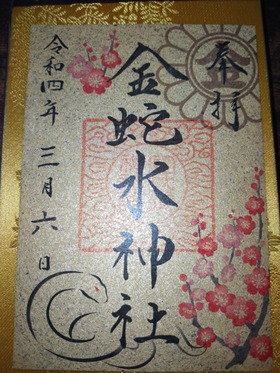 奉拝
金蛇水神社
令和四年三月六日